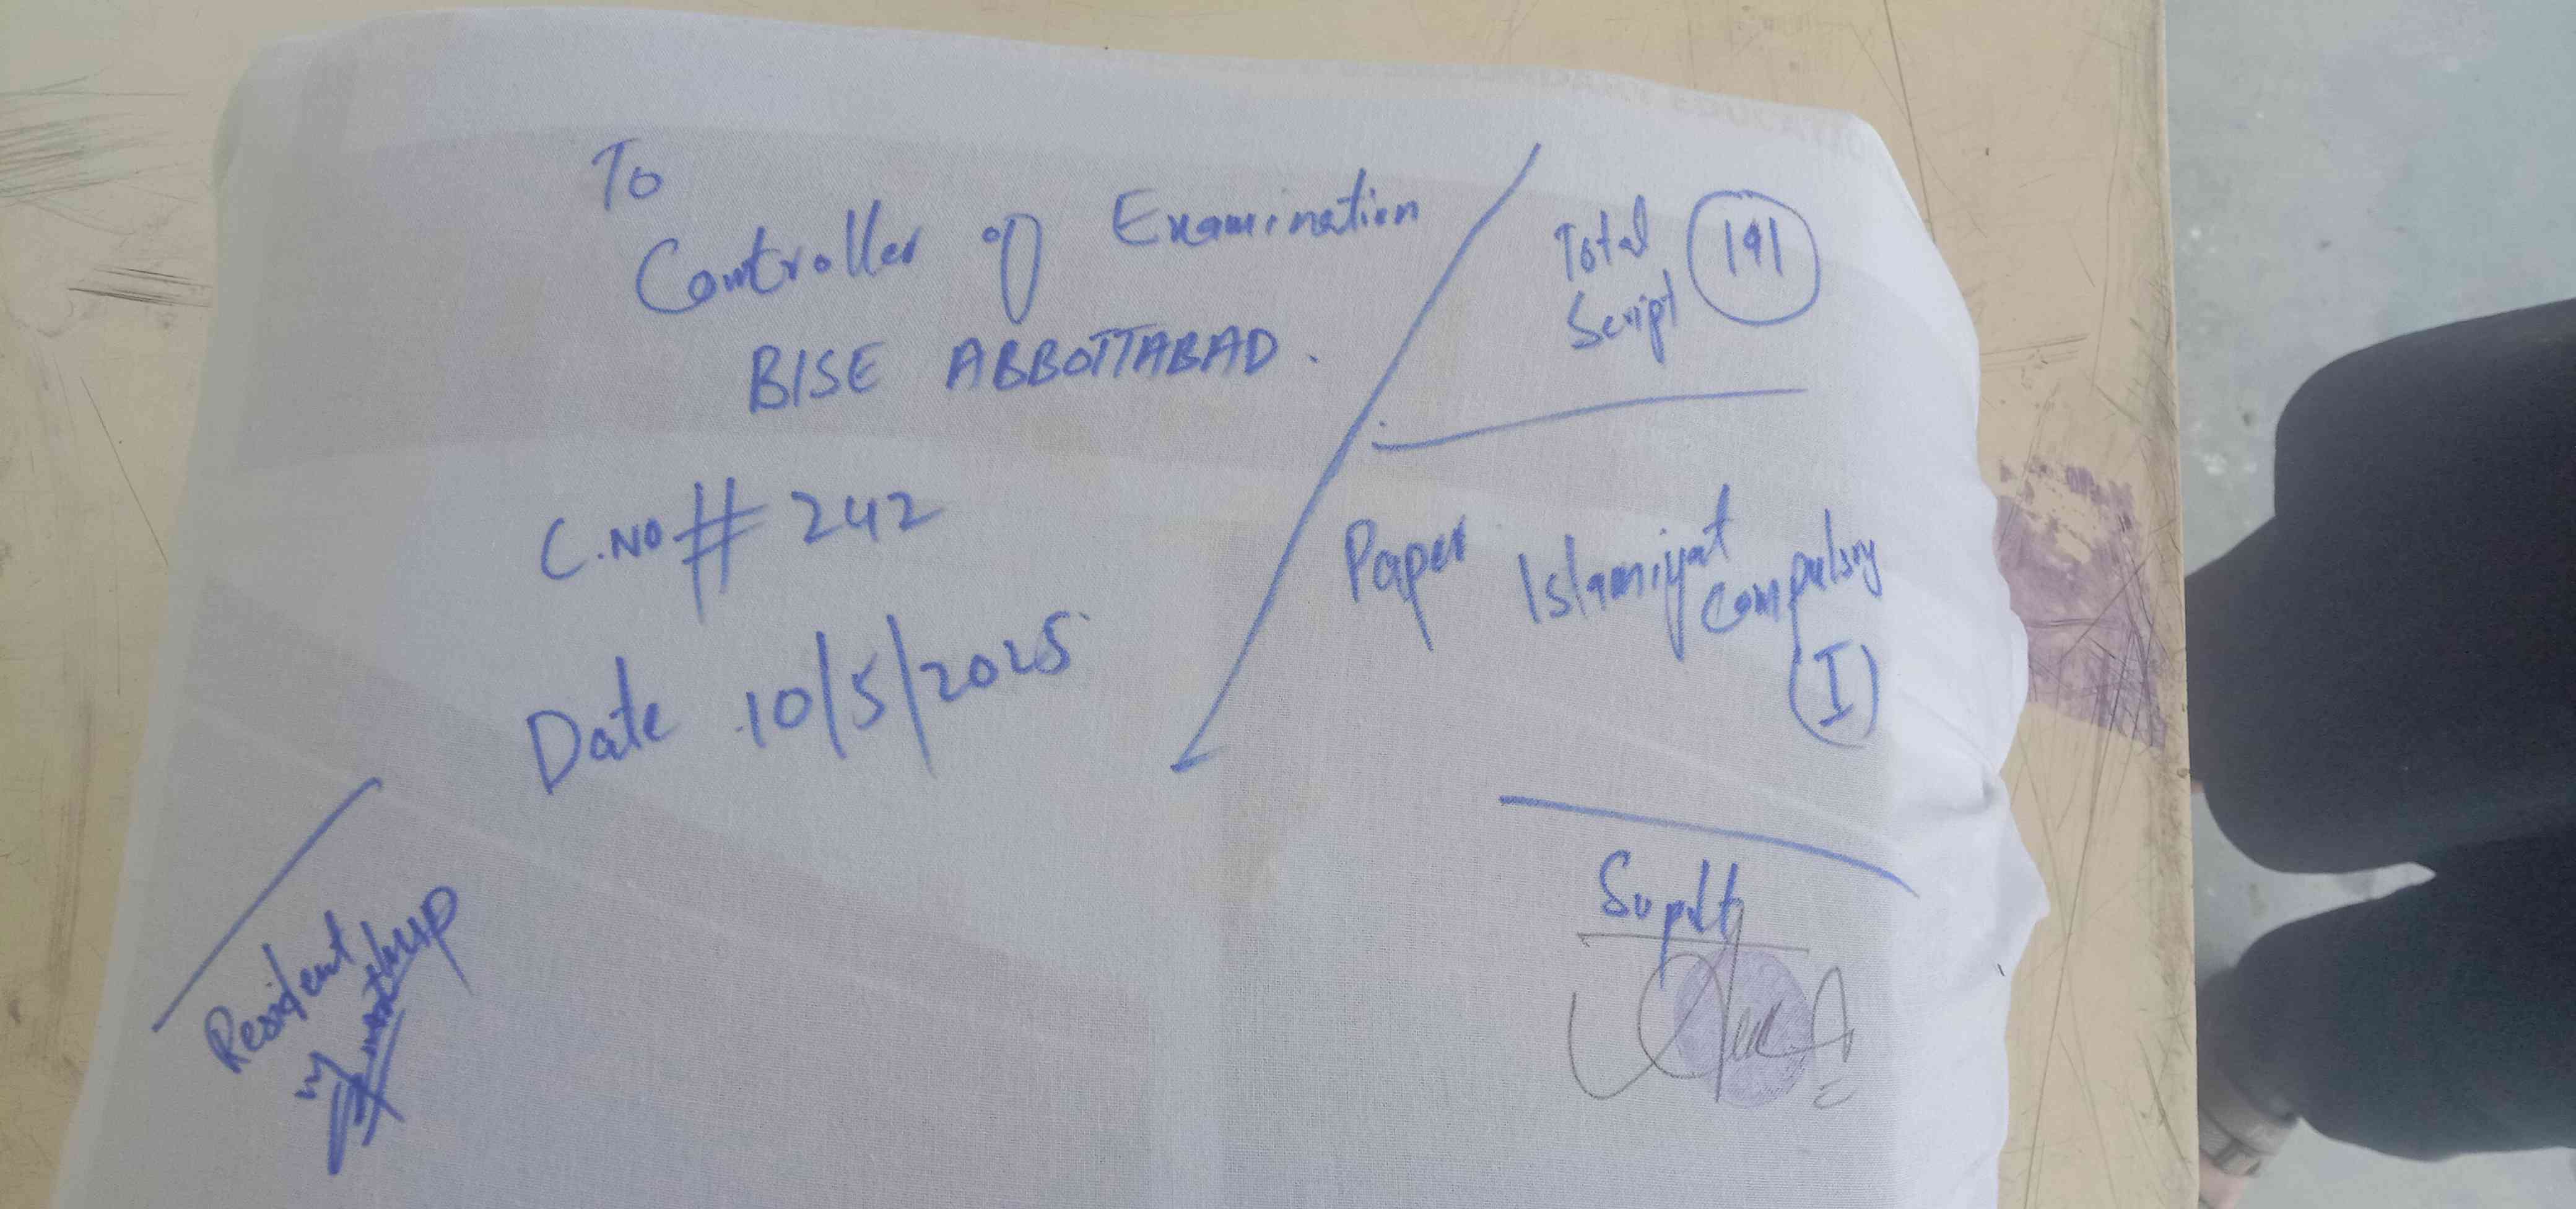 To
Controller of Examination
BISE ABBOTTABAD.
C.NO # 242
Date 10/5/2025
Total
Script 191
Paper Islamiyat
Compulsry
(I)
Supdt
Resident